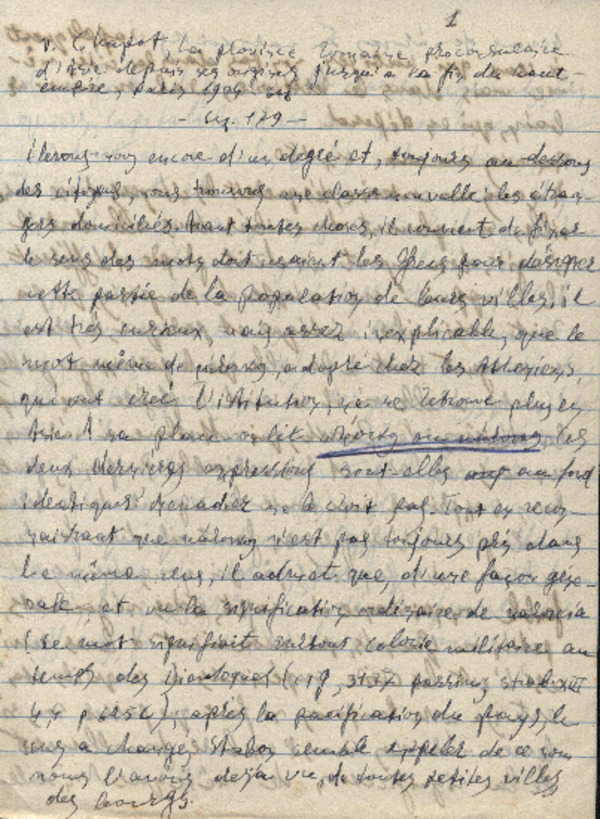 1
V. Chapot, La province romaine proconsulaire
d'Asie depuis ses origines jusqu'a la fin du haut-
empire, Paris 1904
- 179 -
Elevons-nous encore d'un degré et, toujours au-dessous
des citoyens, nous trouvons une classe nouvelle: les étran-
gers domiciliés. Avant toutes choses, il convient de fixer
le sens des mots dont usaient les Grecs pour désigner
cette partie de la population de leurs villes, il
est très curieux, mais assez inexplicable, que le
mot même de adopté chez les Athéniens,
qui ont créé l'institution, ne se retrouve plus en
Asie. A sa place on lit ou les
deux dernières expressions sont-elles au fond
identiques? ne le croit pas. Tout en recon-
naissant que n'est pas toujours pris dans
le même sens, il admet que, d'une façon géné-
rale, et vu la signification ordinaire de
(ce mot signifiait surtout colonie militaire au
temps des passim; Strab. XIII
4,4 p ), après la pacification du pays, le
sens a changé, Strabon semble appeler de ce nom
nous l'avons déjà vu, de toutes petites villes
des bourgs.